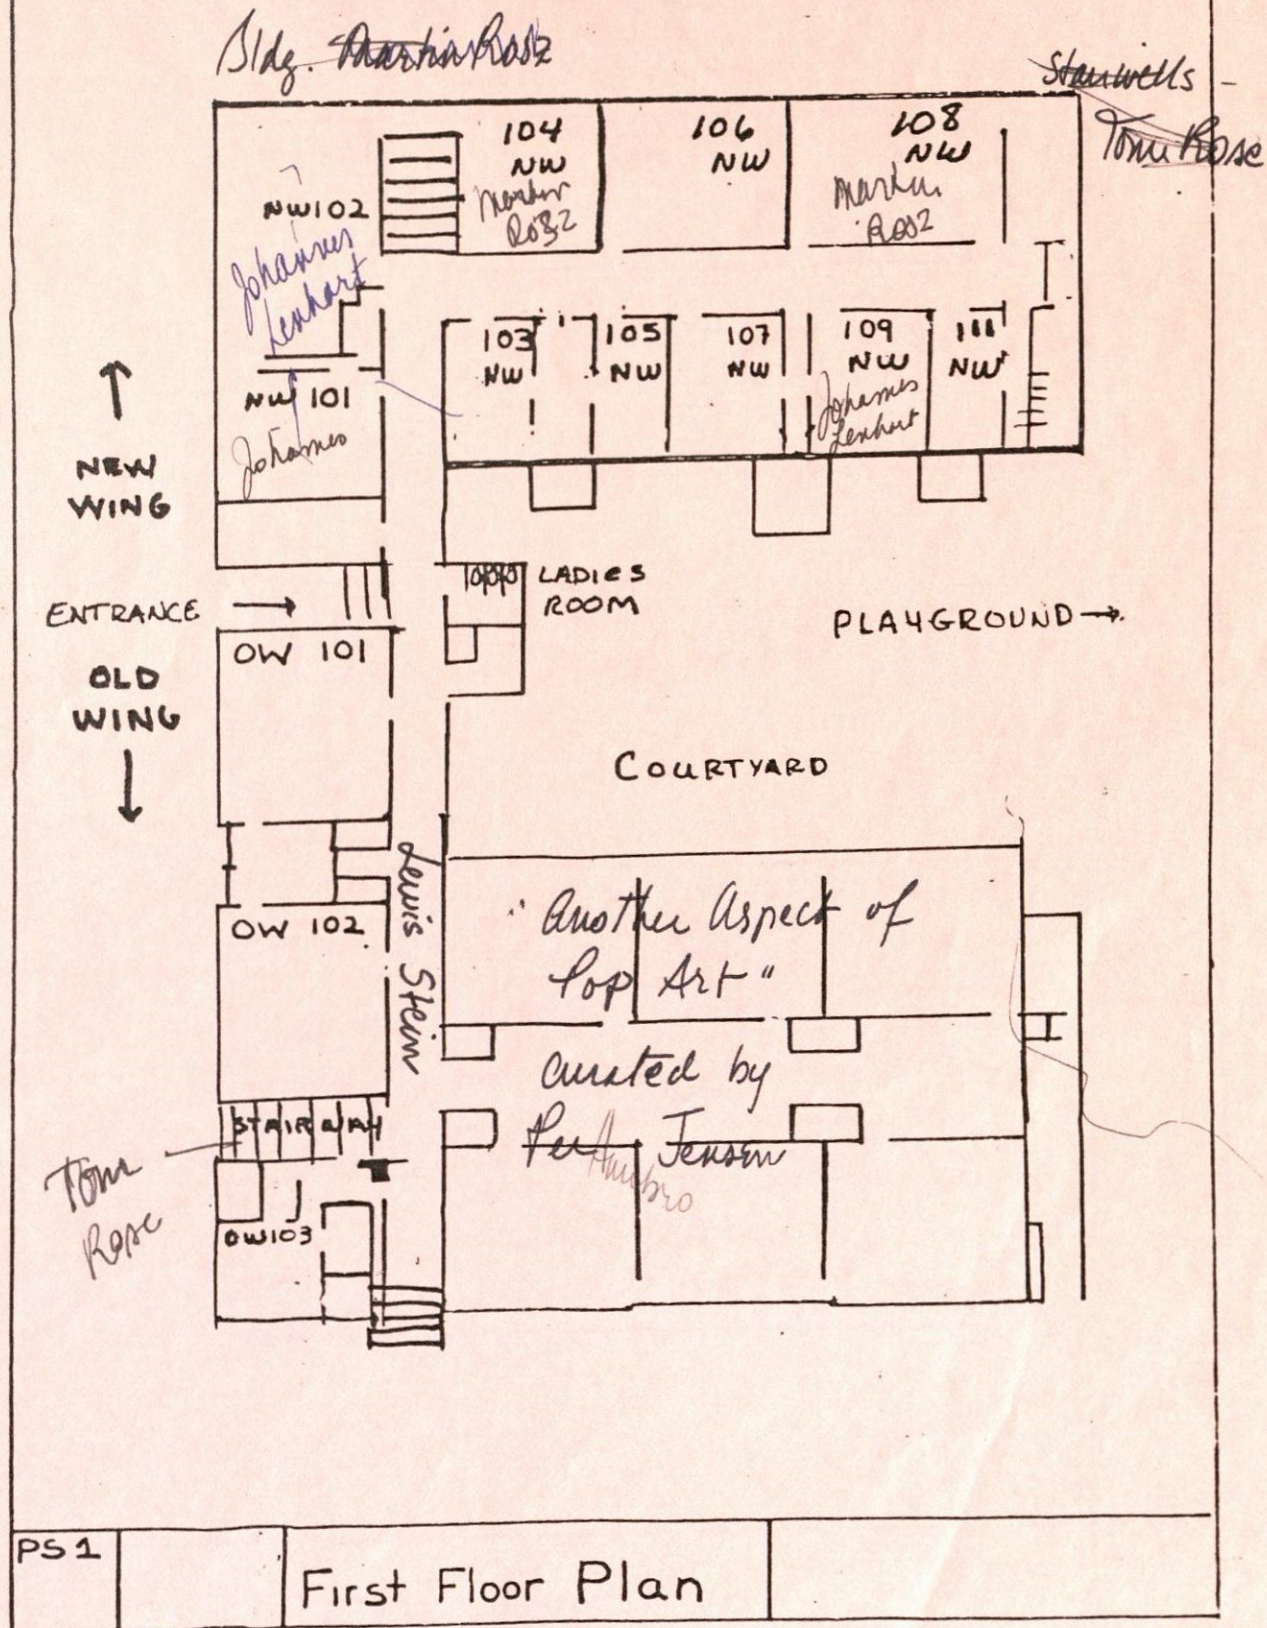 Bldg. Martin Rosz
Stairwells -
Tom Rose
104
NW
Martin
Rosz
106
NW
108
NW
Martin
Rosz
NW 102
Johannes
Lenhart
103
NW
105
NW
107
NW
109
NW
Johannes
Lenhart
111
NW
NW 101
Johannes
↑
NEW
WING
ENTRANCE →
LADIES
ROOM
PLAYGROUND →
OW 101
OLD
WING
↓
COURTYARD
Lewis Stein
OW 102
"Another Aspect of
Pop Art"
curated by
Per Jensen
STAIRWAY
Tom
Rose
OW103
PS1
First Floor Plan